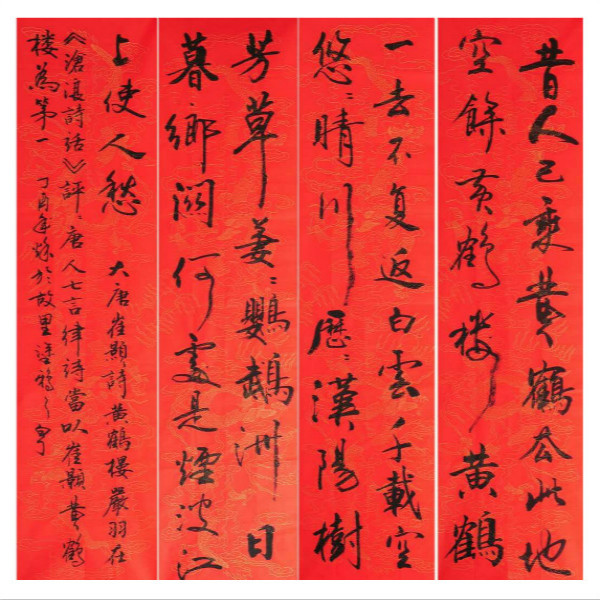 昔人已乘黄鶴去此地
空餘黄鶴樓黄鶴
一去不复返白雲千載空
悠〻晴川歷〻漢陽樹
芳草萋〻鸚鵡洲日
暮鄉關何處是煙波江
上使人愁 大唐崔顥詩黄鶴樓嚴羽在
《滄浪詩話》評:唐人七言律詩當以崔顥黄鶴
樓為第一 丁酉年於故里塗鴉之